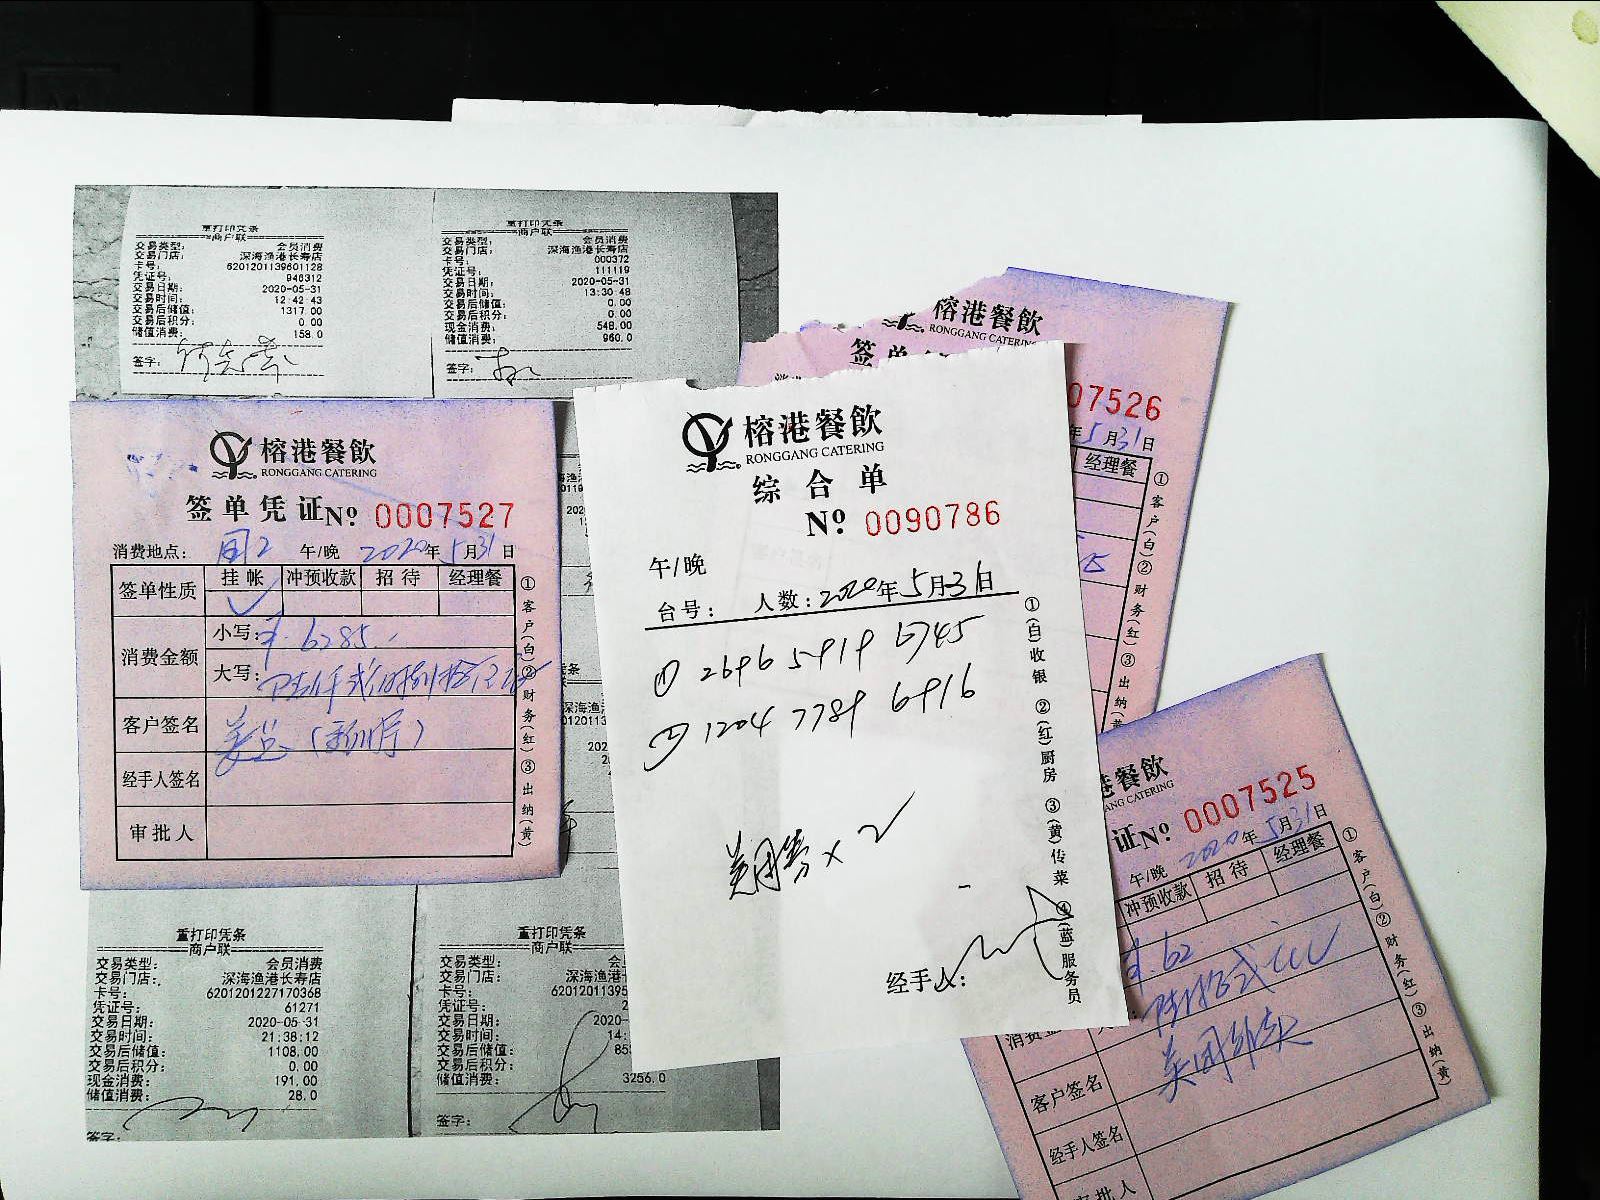 重打印凭条
商户联
交易类型: 会员消费
交易门店: 深海渔港长寿店
卡号: 6201201139601128
凭证号: 940312
交易日期: 2020-05-31
交易时间: 12:42:43
交易后储值: 1317.00
交易后积分: 0.00
储值消费: 158.0
签字:
重打印凭条
商户联
交易类型: 会员消费
交易门店: 深海渔港长寿店
卡号: 000372
凭证号: 111119
交易日期: 2020-05-31
交易时间: 13:30:48
交易后储值: 0.00
交易后积分: 0.00
现金消费: 548.00
储值消费: 960.0
签字:
榕港餐飲
RONGGANG CATERING
签单凭证 Nº 0007527
消费地点: 午/晚 2020年5月31日
签单性质 挂帐 冲预收款 招待 经理餐
消费金额 小写: ¥.6285.
大写:
客户签名
经手人签名
审批人
①客户(白)②财务(红)③出纳(黄)
榕港餐飲
RONGGANG CATERING
综合单
Nº 0090786
午/晚
台号: 人数: 2020年5月31日
① 2696 5919 6745
② 1204 7789 6916
美团券×2
经手人:
①(白)收银 ②(红)厨房 ③(黄)传菜 ④(蓝)服务员
榕港餐飲
RONGGANG CATERING
签单
07526
年5月31日
经理餐
①客户(白)②财务(红)③出纳(黄
餐飲
ANG CATERING
证 Nº 0007525
午/晚 2020年5月31日
冲预收款 招待 经理餐
¥.62
客户签名
经手人签名
审批人
①客户(白)②财务(红)③出纳(黄)
重打印凭条
商户联
交易类型: 会员消费
交易门店: 深海渔港长寿店
卡号: 6201201227170368
凭证号: 61271
交易日期: 2020-05-31
交易时间: 21:38:12
交易后储值: 1108.00
交易后积分: 0.00
现金消费: 191.00
储值消费: 28.0
签字:
重打印凭条
商户联
交易类型: 会
交易门店: 深海渔港
卡号: 620120113
凭证号:
交易日期: 2020-
交易时间: 14:
交易后储值:
交易后积分:
储值消费: 3256.0
签字: